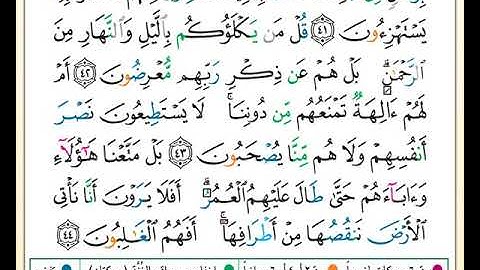 يَسْتَهْزِءُونَ ﴿٤١﴾ قُلْ مَن يَكْلَؤُكُم بِٱلَّيْلِ وَٱلنَّهَارِ مِنَ
ٱلرَّحْمَٰنِ ۗ بَلْ هُمْ عَن ذِكْرِ رَبِّهِم مُّعْرِضُونَ ﴿٤٢﴾ أَمْ
لَهُمْ ءَالِهَةٌ تَمْنَعُهُم مِّن دُونِنَا ۚ لَا يَسْتَطِيعُونَ نَصْرَ
أَنفُسِهِمْ وَلَا هُم مِّنَّا يُصْحَبُونَ ﴿٤٣﴾ بَلْ مَتَّعْنَا هَٰٓؤُلَآءِ
وَءَابَآءَهُمْ حَتَّىٰ طَالَ عَلَيْهِمُ ٱلْعُمُرُ ۗ أَفَلَا يَرَوْنَ أَنَّا نَأْتِى
ٱلْأَرْضَ نَنقُصُهَا مِنْ أَطْرَافِهَآ ۚ أَفَهُمُ ٱلْغَٰلِبُونَ ﴿٤٤﴾